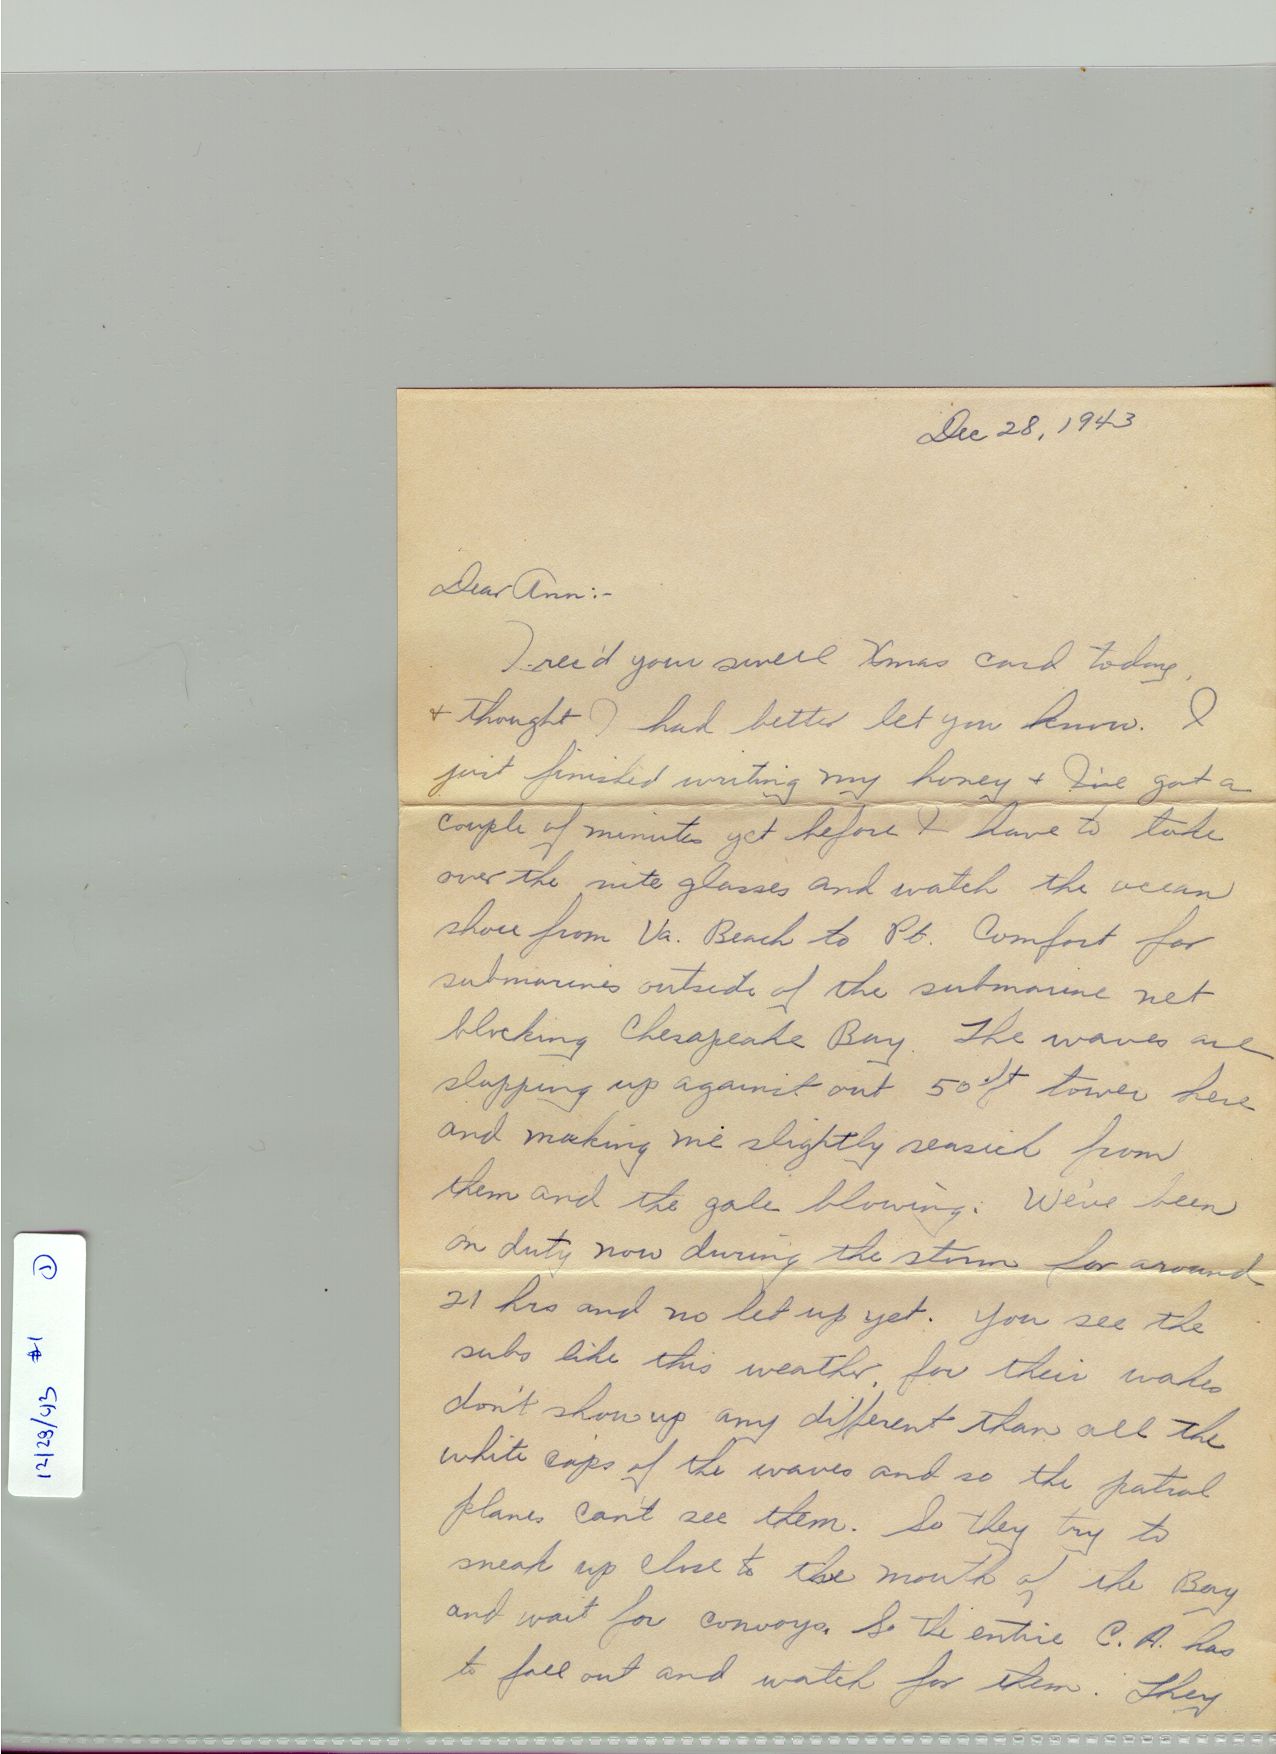 Dec 28, 1943
Dear Ann:-
I rec'd your swell Xmas card today,
+ thought I had better let you know. I
just finished writing my honey + I've got a
couple of minutes yet before I have to take
over the nite glasses and watch the ocean
shore from Va. Beach to Pt. Comfort for
submarines outside of the submarine net
blocking Chesapeake Bay. The waves are
slapping up against out 50 ft tower here
and making me slightly seasick from
them and the gale blowing. We've been
on duty now during the storm for around
21 hrs and no let up yet. You see the
subs like this weather, for their wakes
don't show up any different than all the
white caps of the waves and so the patrol
planes can't see them. So they try to
sneak up close to the mouth of the Bay
and wait for convoys. So the entire C. A. has
to fall out and watch for them. They
12/28/43 #1 ①